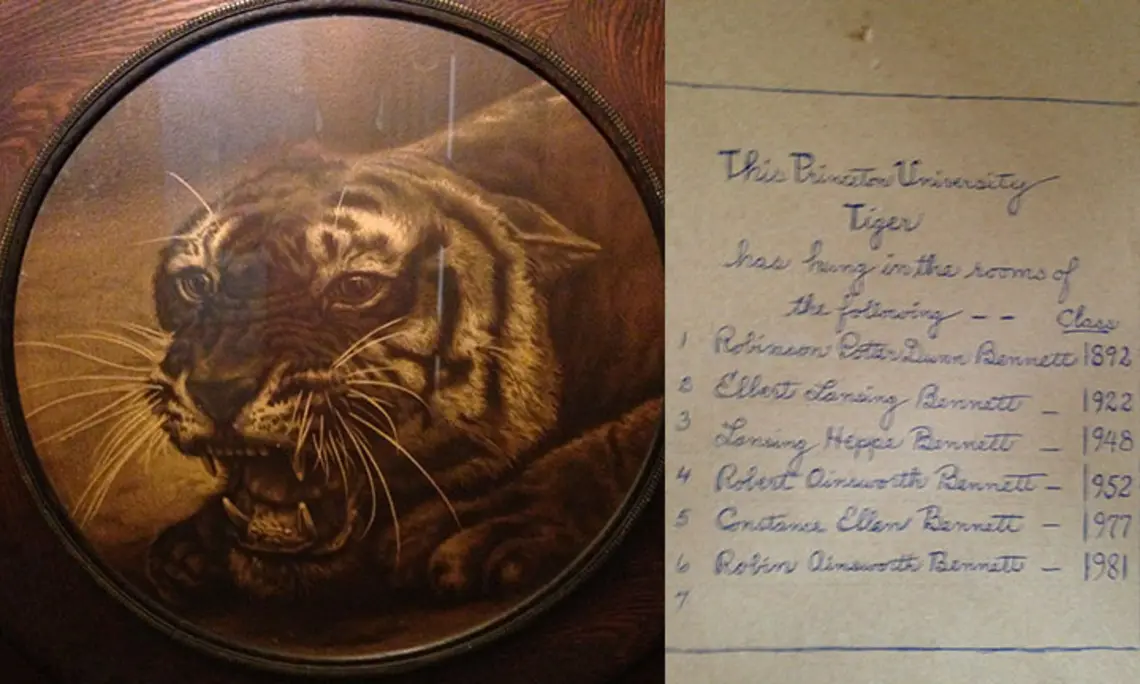 This Princeton University
Tiger
has hung in the rooms of
the following -- Class
1 Robinson Potter Dunn Bennett 1892
2 Elbert Lansing Bennett - 1922
3 Lansing Heppe Bennett - 1948
4 Robert Ainsworth Bennett - 1952
5 Constance Ellen Bennett - 1977
6 Robin Ainsworth Bennett - 1981
7